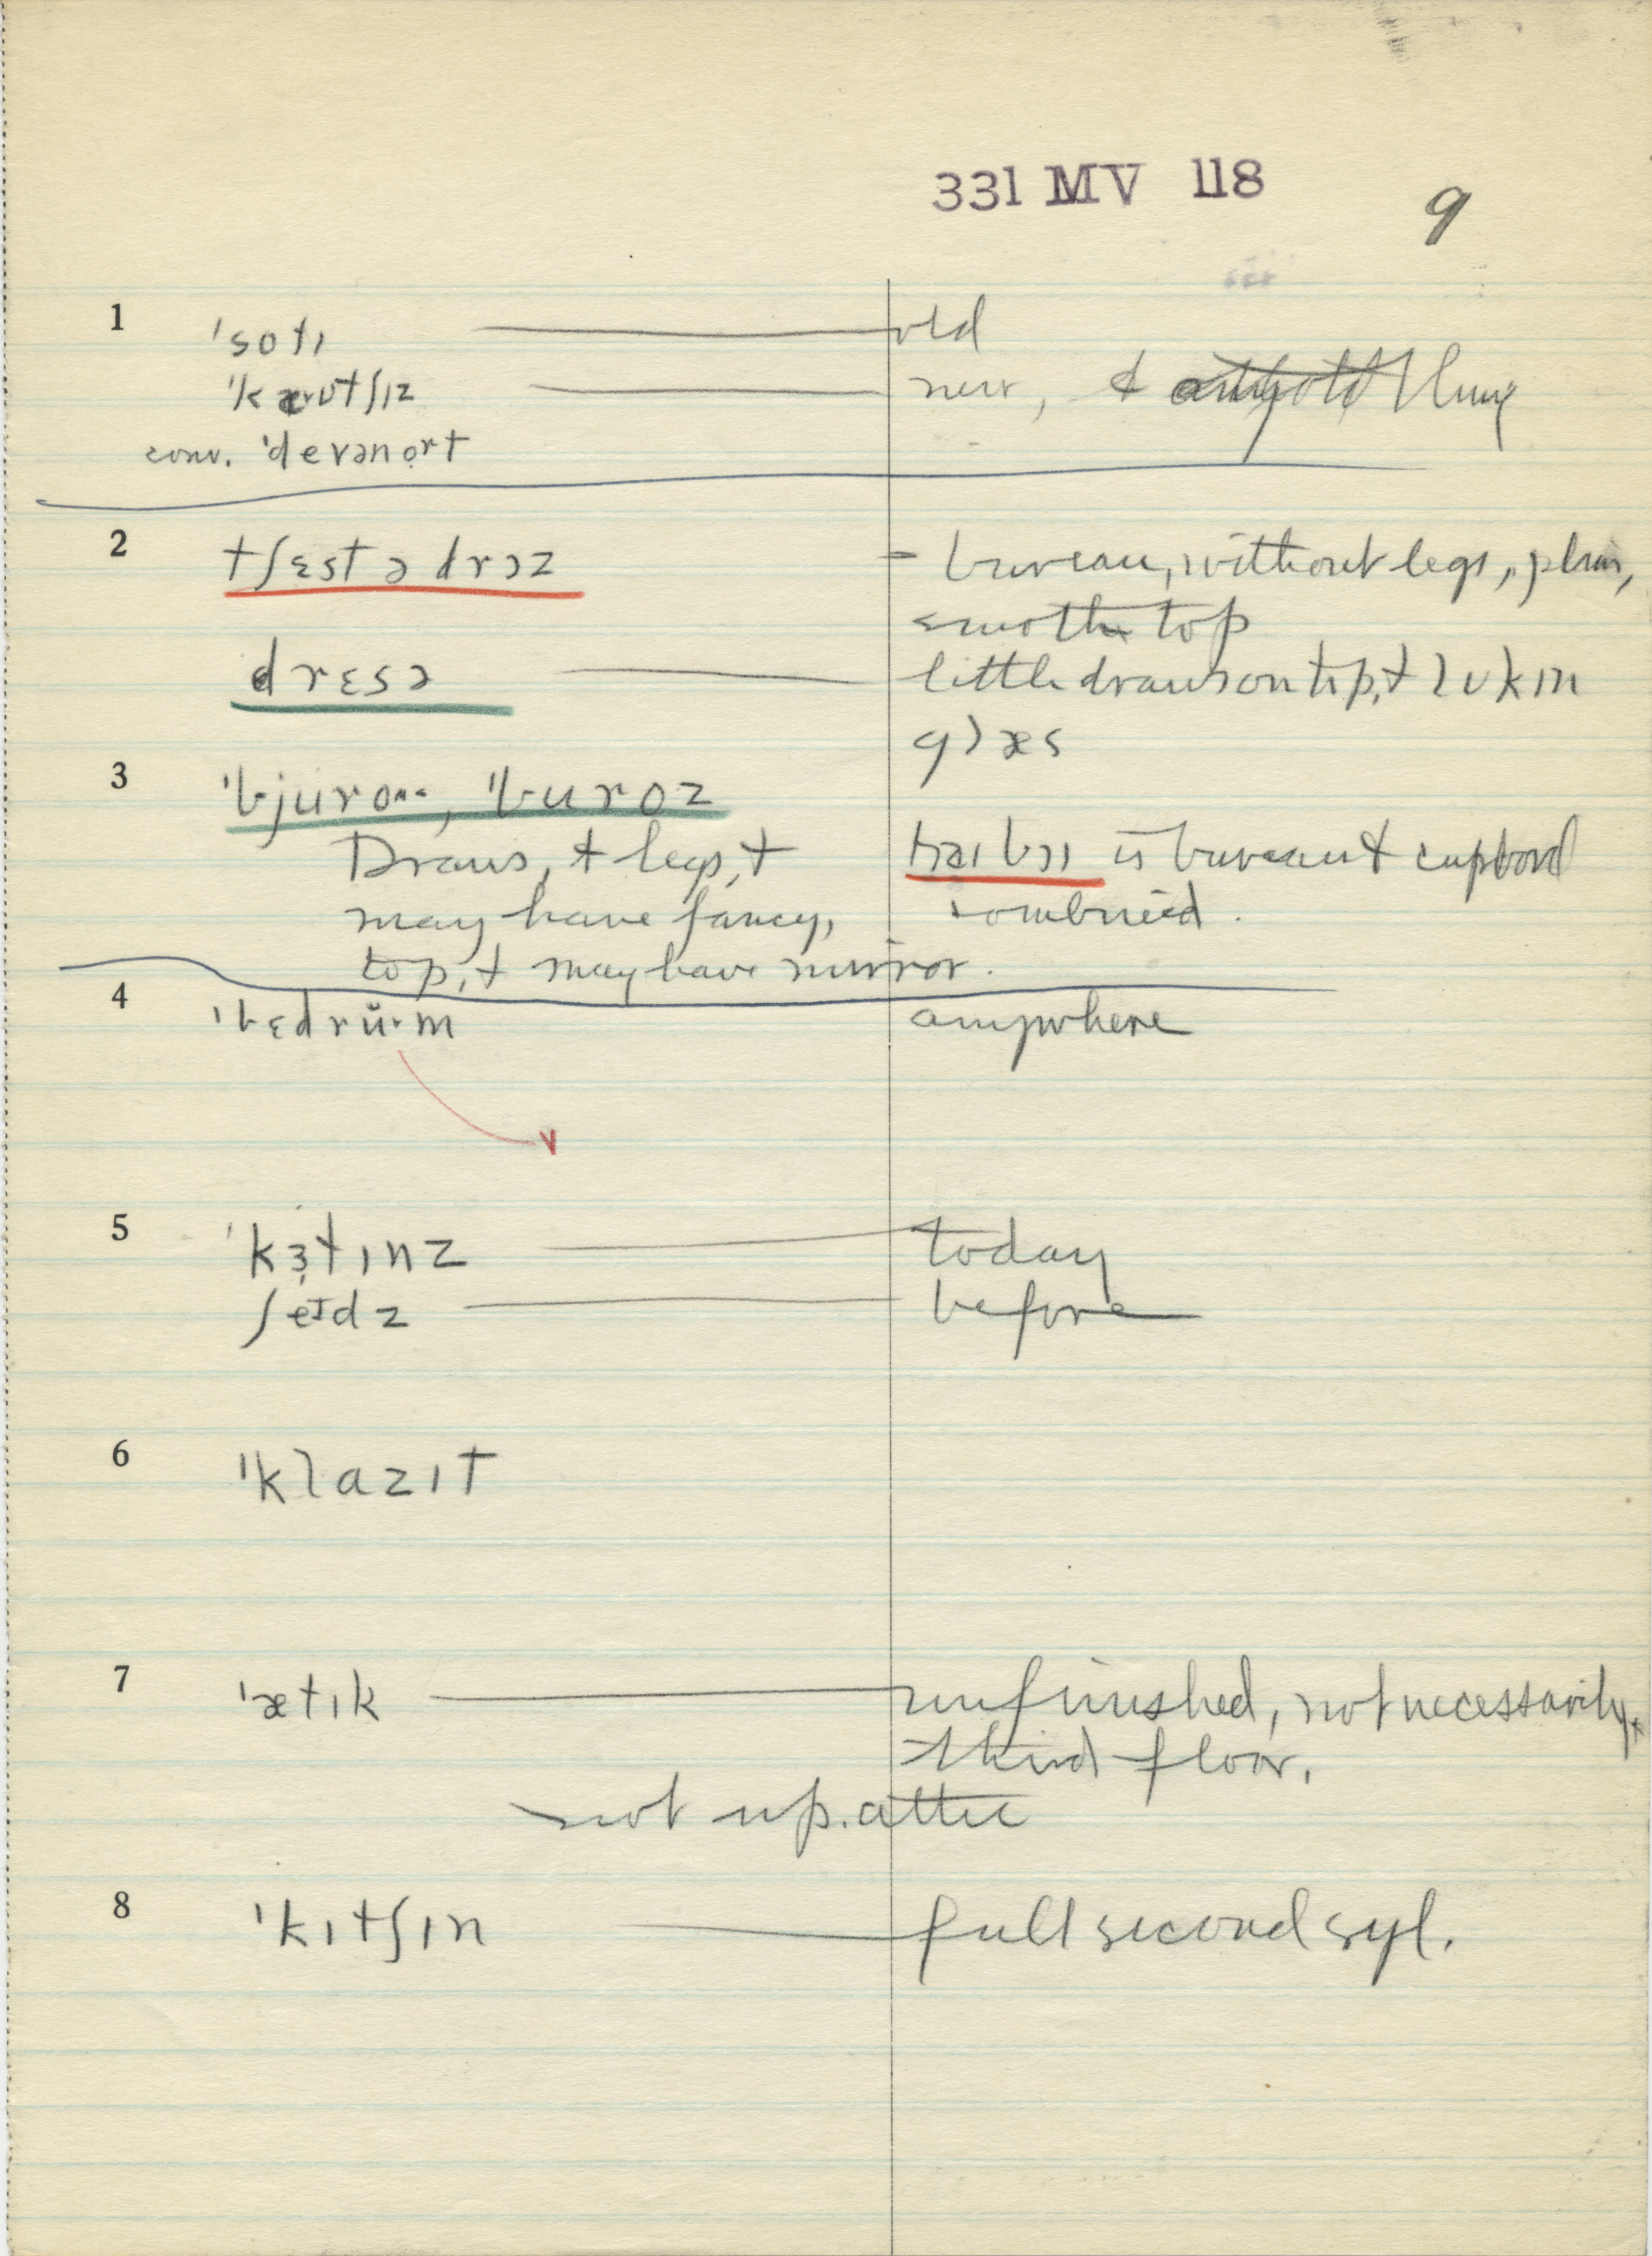 331 MV 118
9
1 ˈsotɪ old
ˈkautʃɪz new, &
conv. ˈdevənọrt
2 tʃɛst ə drɔz - bureau, without legs, plain,
smooth top
drɛsə little draws on top, & lʊkɪn
glæs
3 ˈbjuro.., ˈburoz
Draws, & legs, & haɪ bɔɪ is bureau & cupbord
may have fancy, combined.
top, & may have mirror.
4 ˈbɛdrŭ·m anywhere
5 ˈkɜ̣tɪnz today
ʃeɪdz before
6 ˈklazɪt
7 ˈætɪk unfinished, not necessarily
third floor.
not up attic
8 ˈkɪtʃɪn full second syl.